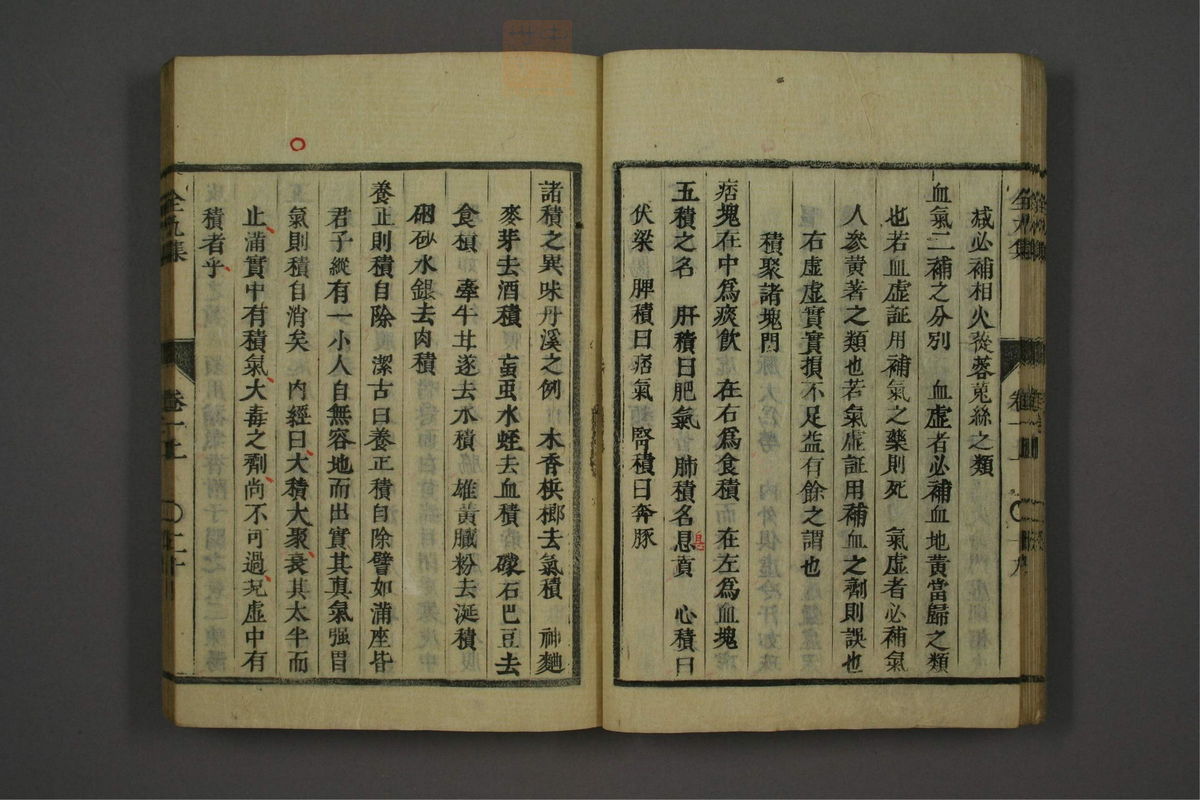 减必補相火蓯蓉菟絲之類
血氣二補之分別　血虛者必補血地黄當歸之類
也若血虛証用補氣之藥則死　氣虛者必補氣
人參黄著之類也若氣虛証用補血之劑則誤也
右虛虛實實損不足益有餘之謂也
積聚諸塊門
痞塊在中爲痰飲　在右爲食積　在左爲血塊
五積之名　肝積曰肥氣　肺積名息賁　心積曰
息
伏梁　脾積曰痞氣　腎積曰奔豚
諸積之異味丹溪之例　木香梹榔去氣積　神麯
麥芽去酒積　䖟虫水蛭去血積　礞石巴豆去
食積　牽牛甘遂去水積　雄黄膩粉去涎積
硇砂水銀去肉積
養正則積自除　潔古曰養正積自除譬如滿座皆
君子縱有一小人自無容地而出實其真氣强胃
氣則積自消矣　內經曰大積大聚衰其太半而
止滿實中有積氣大毒之劑尚不可過况虛中有
積者乎
全九集
卷一上
二十